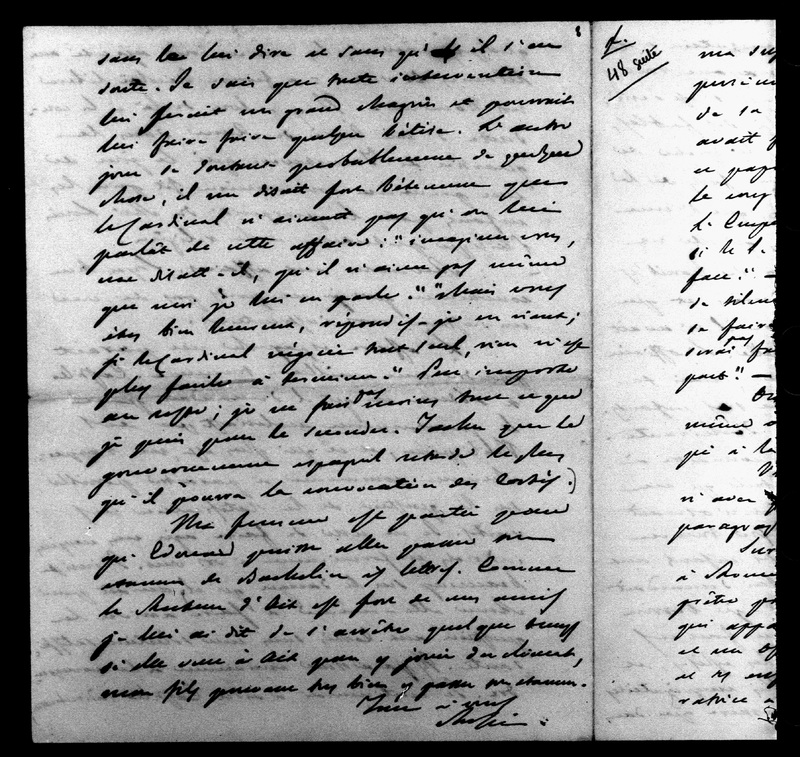 8
sans le lui dire et sans qu'il s'en
doute. Je sais que toute intervention
lui ferait un grand chagrin et pourrait
lui faire faire quelque bêtise. L'autre
jour se doutant probablement de quelque
chose, il me disait fort bêtement que
le Cardinal n'aimait pas qu'on lui
parlât de cette affaire: "imaginez vous,
me disait-il, qu'il n'aime pas même
que moi je lui en parle." "Mais vous
êtes bien heureux, répondis-je en riant;
si le Cardinal négocie tout seul, rien n'est
plus facile à terminer." Peu importe
au reste; je ne fais pas moins tout ce que
je puis pour le seconder. Tachez que le
gouvernement espagnol retarde le plus
qu'il pourra la convocation des Cortès.)
Ma femme est partie pour
qu'Edouard puisse aller passer son
examen de Bachelier ès lettres. Comme
le Recteur d'Aix est fort de mes amis
je lui ai dit de s'arrêter quelque temps
si elle veut à Aix pour y jouir du climat,
mon fils pouvant très bien y passer son examen.
Tout à vous
48 suite
de sa
avait
le
face." —
de silence
se faire
pas
part." —
même
qui à la
n'avez
paragrap
Sur
à Rome
prêtre
qui
et un